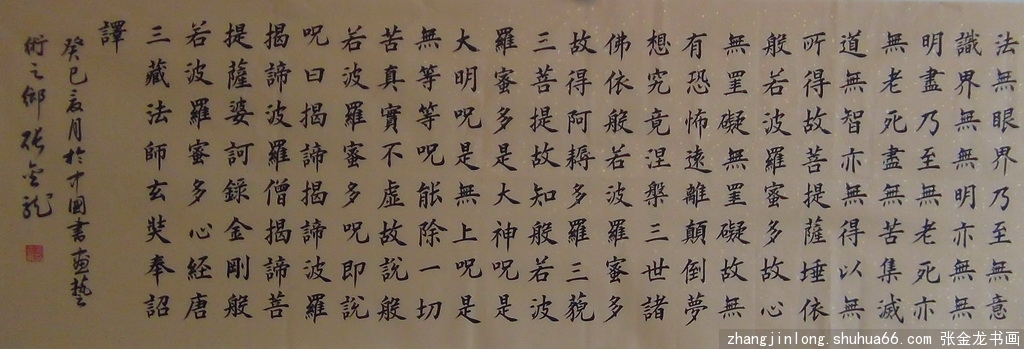 法無眼界乃至無意
識界無無明亦無無
明盡乃至無老死亦
無老死盡無苦集滅
道無智亦無得以無
所得故菩提薩埵依
般若波羅蜜多故心
無罣礙無罣礙故無
有恐怖遠離顛倒夢
想究竟涅槃三世諸
佛依般若波羅蜜多
故得阿耨多羅三藐
三菩提故知般若波
羅蜜多是大神呪是
大明呪是無上呪是
無等等呪能除一切
苦真實不虛故說般
若波羅蜜多呪即說
呪曰揭諦揭諦波羅
揭諦波羅僧揭諦菩
提薩婆訶錄金剛般
若波羅蜜多心經唐
三藏法師玄奘奉詔
譯
癸巳夏月於中國書画藝
術之鄉張金龍
zhangjinlong.shuhua66.com 张金龙书画